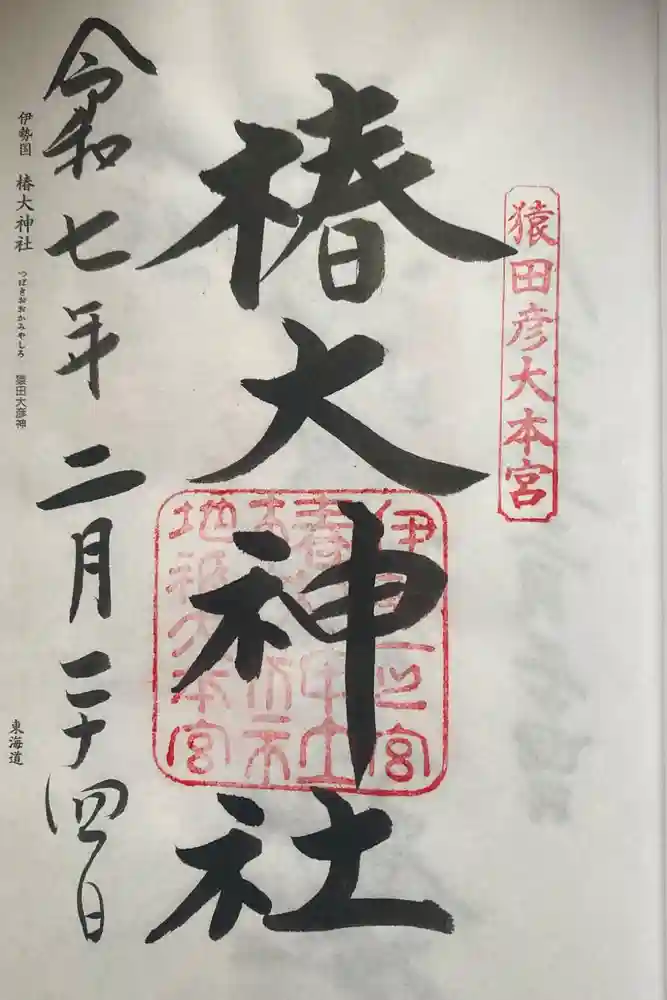 猿田彦大本宮
椿大神社
伊
之宮
椿
地祇大本宮
令和七年二月二十四日
伊勢国 椿大神社 つばきおおかみやしろ 猿田大彦神
東海道